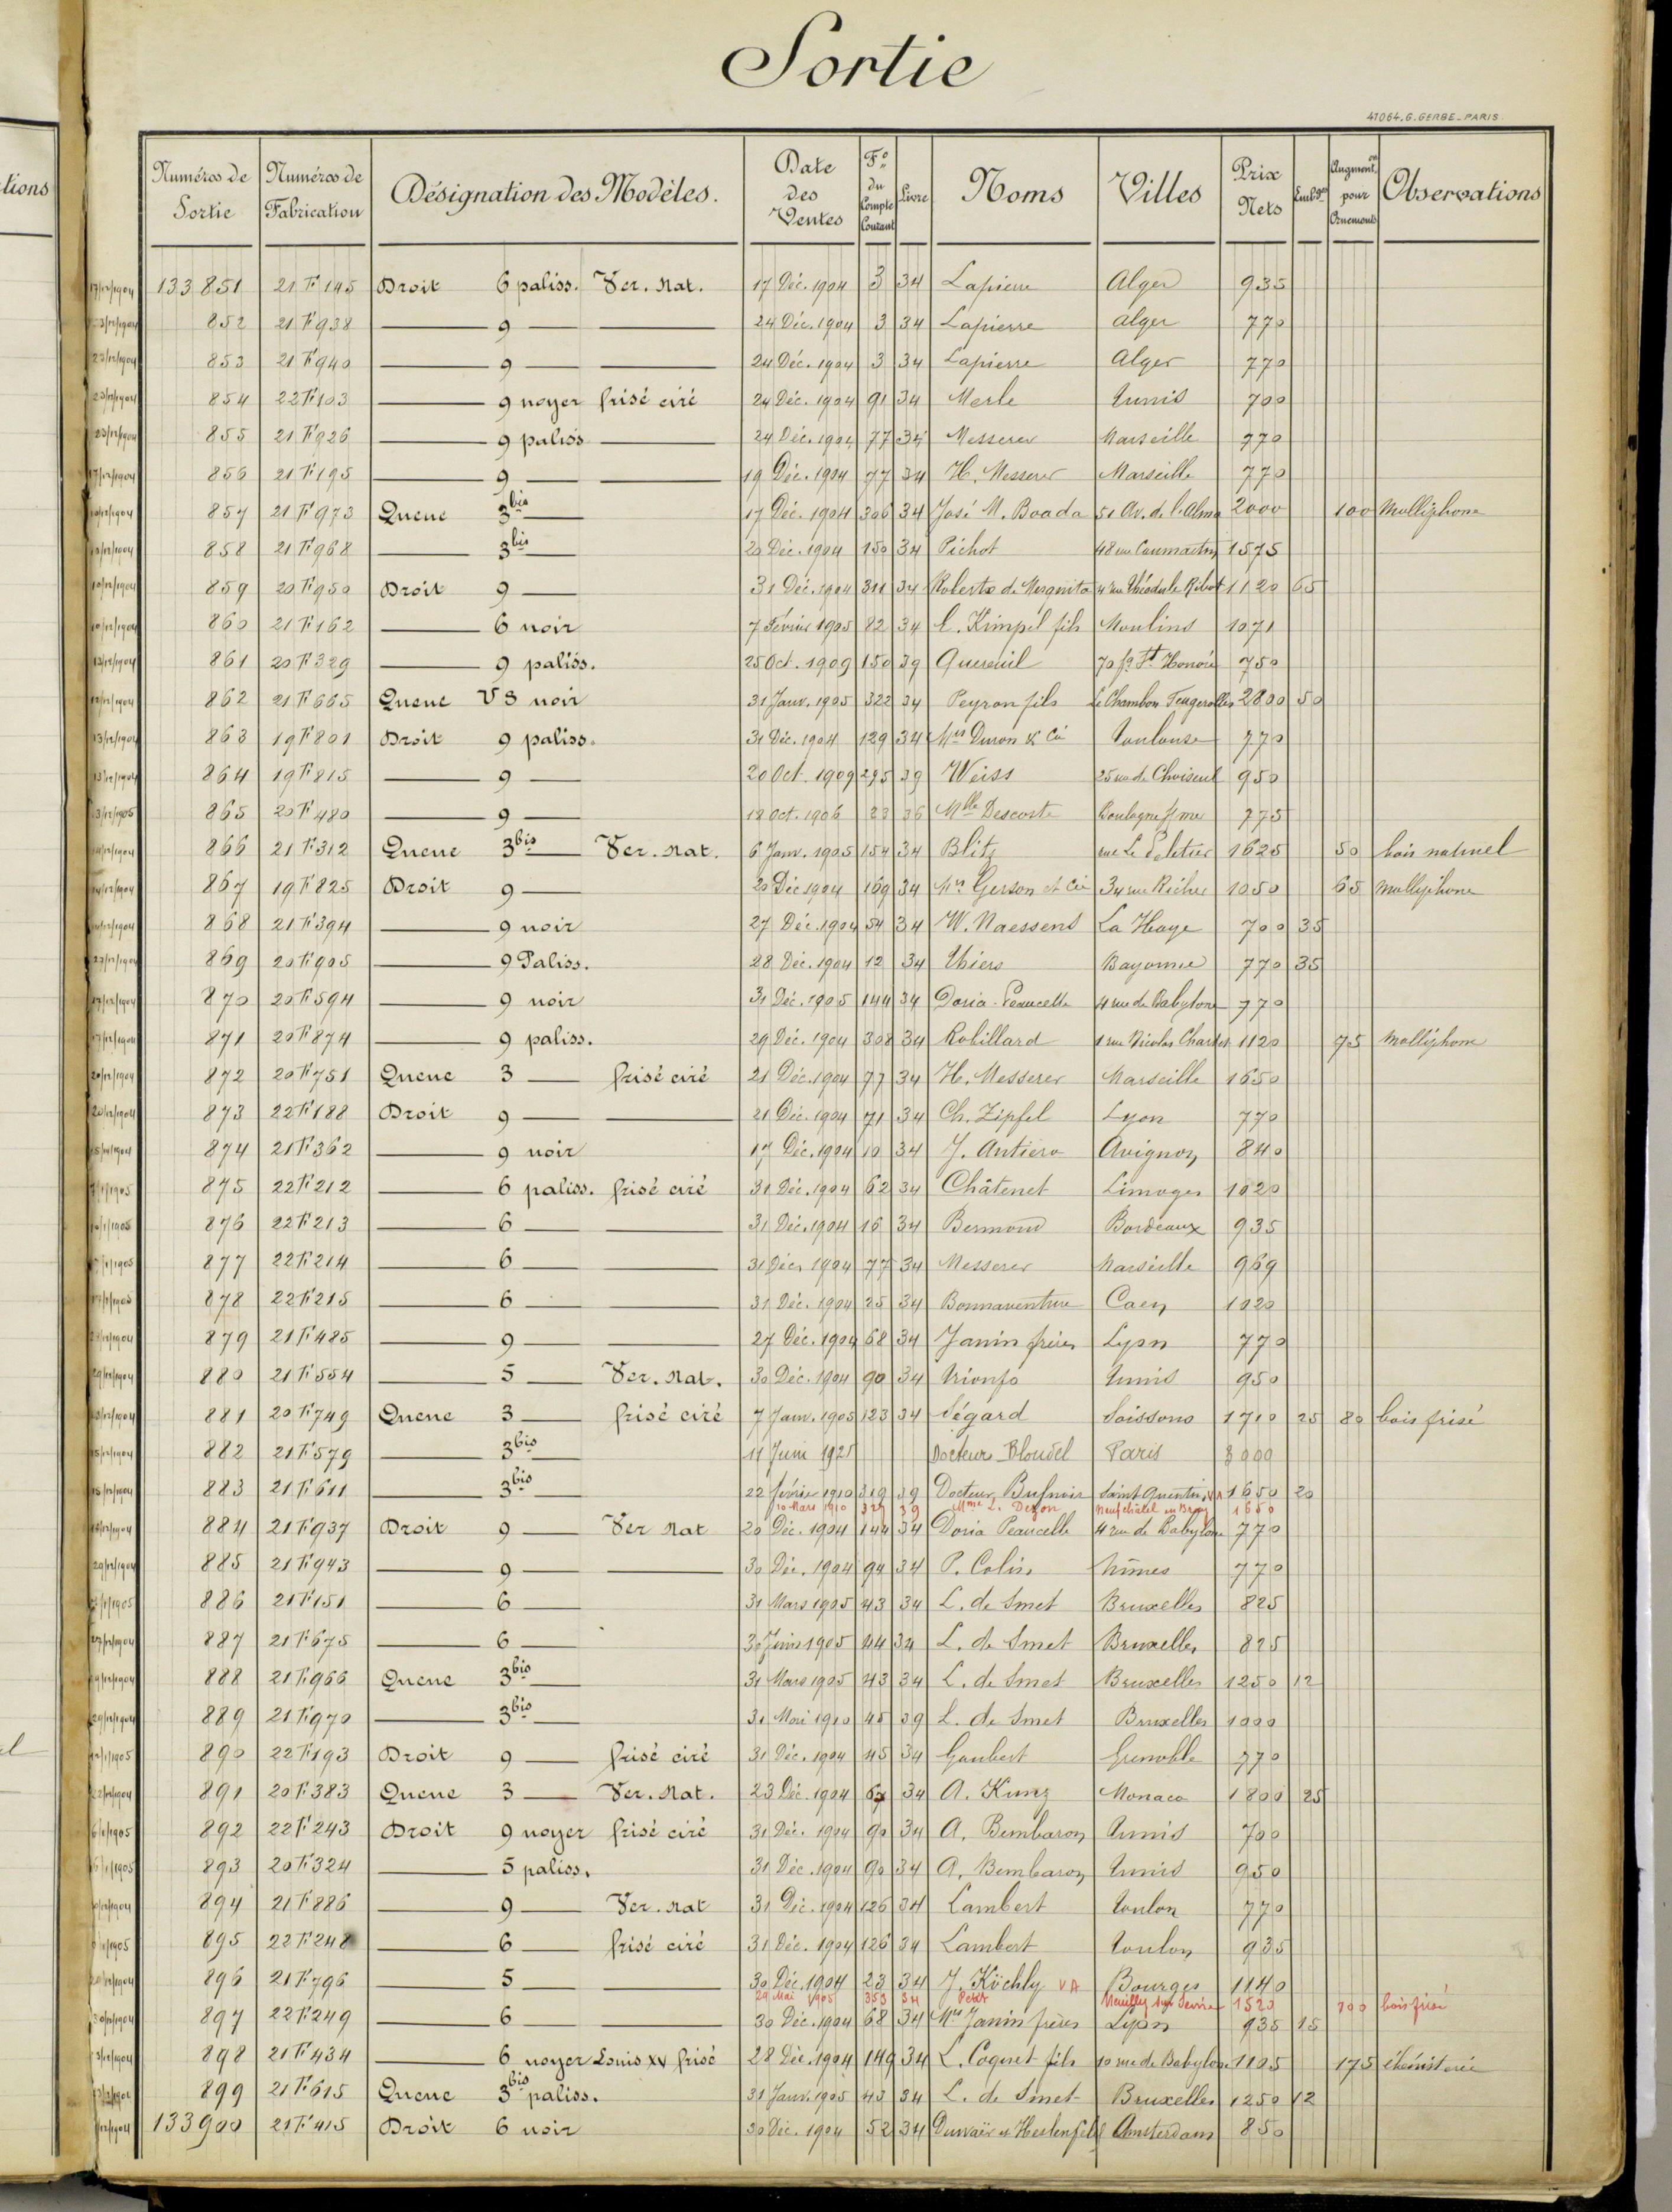 Sortie
41064, G. GERBE_PARIS.
tions
Numéros de Sortie | Numéros de Fabrication | Désignation des Modèles. | Date des Ventes | Fº du Compte Courant | Livre | Noms | Villes | Prix Nets | Emb | Augment. pour Ornements | Observations
133 851 21 Fi 145 Droit 6 paliss. Ver. Nat. 17 Déc. 1904 3 34 Lapierre Alger 935
852 21 Fi 938 9 24 Déc. 1904 3 34 Lapierre Alger 770
853 21 Fi 940 9 24 Déc. 1904 3 34 Lapierre Alger 770
854 22 Fi 103 9 noyer frisé ciré 24 Déc. 1904 91 34 Merle Tunis 700
855 21 Fi 926 9 paliss 24 Déc. 1904 77 34 Messerer Marseille 770
856 21 Fi 195 9 19 Déc. 1904 77 34 H. Messerer Marseille 770
857 21 Fi 973 Queue 3bis 17 Déc. 1904 306 34 José M. Boada 51 Av. de l'Alma 2000 100 Molliphone
858 21 Fi 968 3bis 20 Déc. 1904 150 34 Pichot 48 rue Caumartin 1575
859 20 Fi 950 Droit 9 31 Déc. 1904 311 34 Roberto de Mesquita 4 rue Théodule Ribot 1120 65
860 21 Fi 162 6 noir 7 Février 1905 82 34 E. Kimpel fils Moulins 1071
861 20 Fi 329 9 paliss. 25 Oct. 1909 150 39 70 fg St Honoré 750
862 21 Fi 665 Queue VS noir 31 Janv. 1905 322 34 Peyron fils Le Chambon Feugerolles 2800 50
863 19 Fi 801 Droit 9 paliss. 31 Déc. 1904 129 34 Mrs Duron & Cie Toulouse 770
864 19 Fi 815 9 20 Oct. 1909 295 39 Weiss 25 rue de Choiseul 950
865 20 Fi 480 9 18 Oct. 1906 23 36 Mlle Descoste Boulogne s/ mer 775
866 21 Fi 312 Queue 3bis Ver. Nat. 6 Janv. 1905 154 34 Blitz rue Le Peletier 1625 50 bois naturel
867 19 Fi 825 Droit 9 20 Déc 1904 169 34 Mrs Gerson et Cie 34 rue Richer 1050 65 molliphone
868 21 Fi 394 9 noir 27 Déc. 1904 54 34 W. Naessens La Haye 700 35
869 20 Fi 905 9 Paliss. 28 Déc. 1904 12 34 Thiers Bayonne 770 35
870 20 Fi 594 9 noir 31 Déc. 1905 144 34 Doria-Peaucelle 4 rue de Babylone 770
871 20 Fi 874 9 paliss. 29 Déc. 1904 308 34 Robillard 1 rue Nicolas Charlet 1120 75 Molliphone
872 20 Fi 751 Queue 3 frisé ciré 21 Déc. 1904 77 34 H. Messerer Marseille 1650
873 22 Fi 188 Droit 9 21 Déc. 1904 71 34 Ch. Zipfel Lyon 770
874 21 Fi 362 9 noir 17 Déc. 1904 10 34 J. Antiero Avignon 840
875 22 Fi 212 6 paliss. frisé ciré 31 Déc. 1904 62 34 Châtenet Limoges 1020
876 22 Fi 213 6 31 Déc. 1904 16 34 Bermond Bordeaux 935
877 22 Fi 214 6 31 Déc. 1904 77 34 Messerer Marseille 969
878 22 Fi 215 6 31 Déc. 1904 25 34 Bonnaventure Caen 1020
879 21 Fi 485 9 27 Déc. 1904 68 34 Janin frères Lyon 770
880 21 Fi 554 5 Ver. Nat. 30 Déc. 1904 90 34 Trionfo Tunis 950
881 20 Fi 749 Queue 3 frisé ciré 7 Janv. 1905 123 34 Ségard Soissons 1710 25 80 bois frisé
882 21 Fi 579 3bis 11 Juin 1925 Docteur Blondel Paris 8000
883 21 Fi 611 3bis 22 février 1910 319 39 Docteur Bufnoir Saint Quentin VA 1650 20
10 Mars 1910 327 39 Mme L. Dezon Neufchâtel en Bray 1650
884 21 Fi 937 Droit 9 Ver Nat 20 Déc. 1904 144 34 Doria Peaucelle 4 rue de Babylone 770
885 21 Fi 943 9 30 Déc. 1904 94 34 P. Colin Nîmes 770
886 21 Fi 151 6 31 Mars 1905 43 34 L. de Smet Bruxelles 825
887 21 Fi 675 6 30 Juin 1905 44 34 L. de Smet Bruxelles 825
888 21 Fi 966 Queue 3bis 31 Mars 1905 43 34 L. de Smet Bruxelles 1250 12
889 21 Fi 970 3bis 31 Mai 1910 45 39 L. de Smet Bruxelles 1000
890 22 Fi 193 Droit 9 frisé ciré 31 Déc. 1904 45 34 Gaubert Grenoble 770
891 20 Fi 383 Queue 3 Ver. Nat. 23 Déc. 1904 67 34 A. Kunz Monaco 1800 25
892 22 Fi 243 Droit 9 noyer frisé ciré 31 Déc. 1904 90 34 A. Bembaron Tunis 700
893 20 Fi 324 5 paliss. 31 Déc. 1904 90 34 A. Bembaron Tunis 950
894 21 Fi 886 9 Ver. Nat 31 Déc. 1904 126 34 Lambert Toulon 770
895 22 Fi 248 6 frisé ciré 31 Déc. 1904 126 34 Lambert Toulon 935
896 21 Fi 796 5 30 Déc. 1904 23 34 J. Köchly VA Bourges 1140
29 Mai 1905 353 34 Petit Neuilly sur Seine 1520 100 bois frisé
897 22 Fi 249 6 30 Déc. 1904 68 34 Mrs Janin frères Lyon 935 15
898 21 Fi 434 6 noyer Louis XV frisé 28 Déc. 1904 149 34 L. Coqnet fils 10 rue de Babylone 1105 175 ébénisterie
899 21 Fi 615 Queue 3bis paliss. 31 Janv. 1905 43 34 L. de Smet Bruxelles 1250 12
133900 21 Fi 415 Droit 6 noir 30 Déc. 1904 52 34 Amsterdam 850